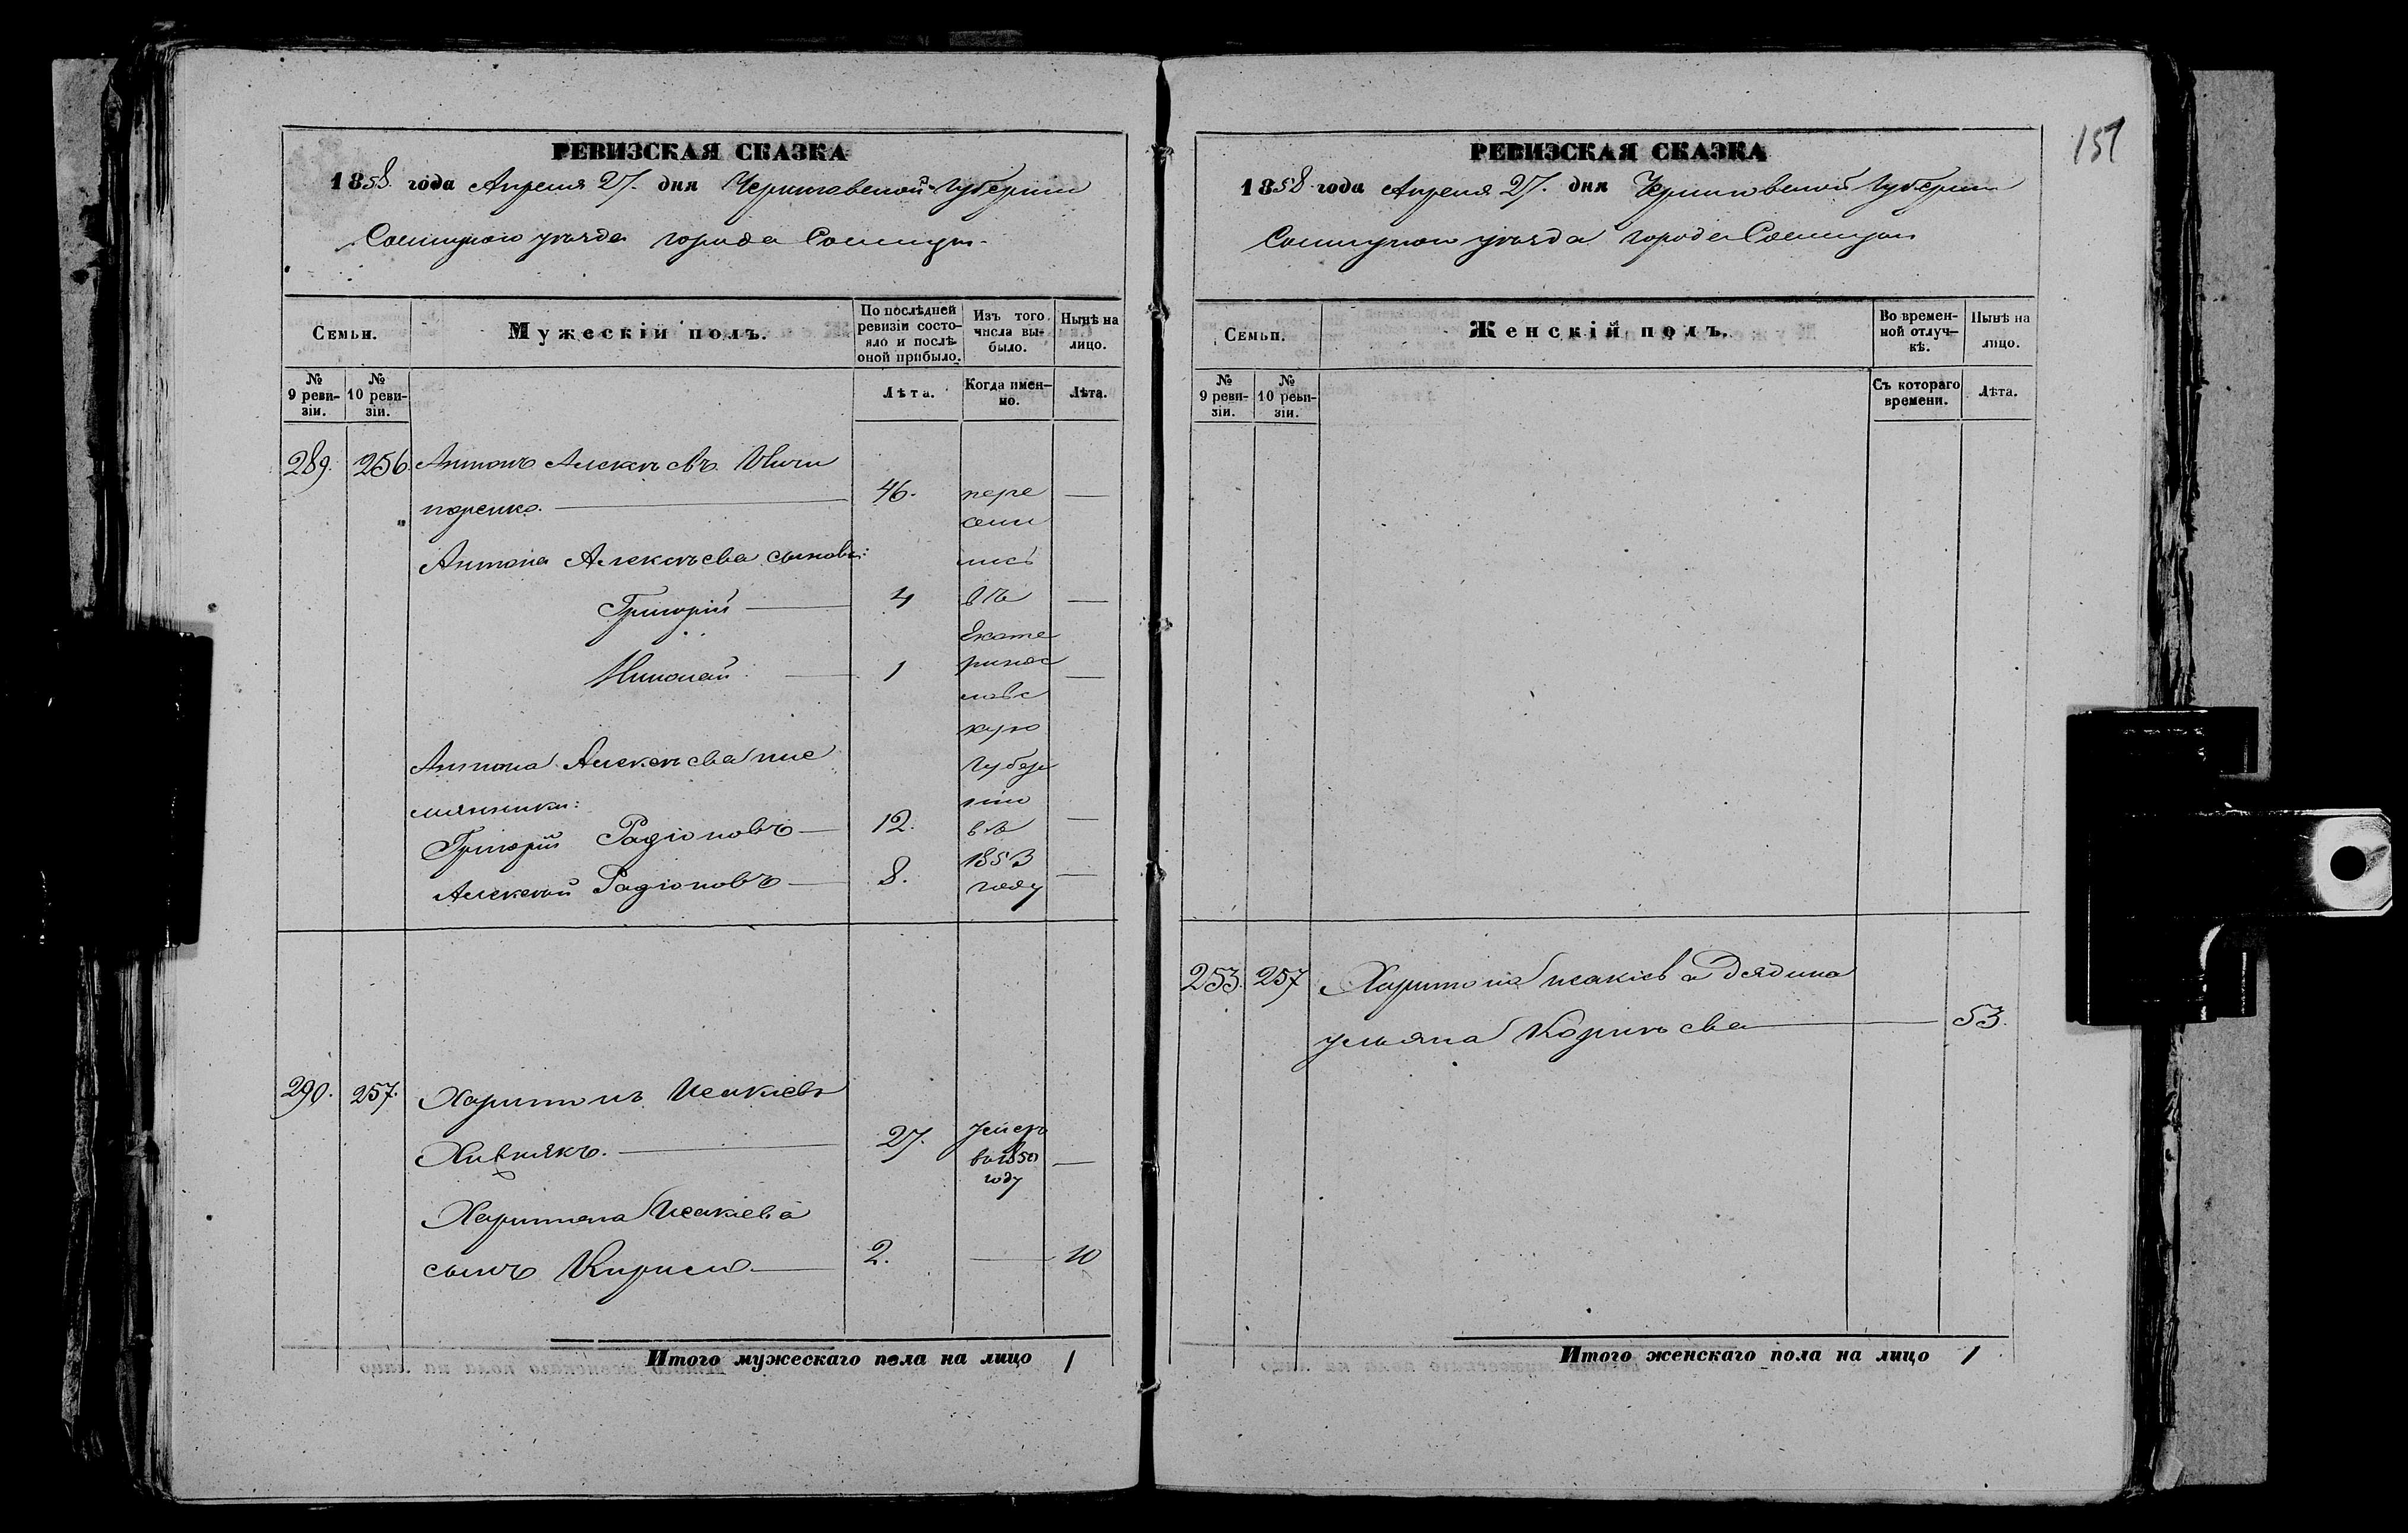 151
РЕВИЗСКАЯ СКАЗКА
1858. года Апреля 27. дня Черниговской Губернии
Сосницкого уѣзда города Сосницы.
Семьи.
Мужескій полъ.
По послѣдней ревизіи состояло и послѣ оной прибыло.
Изъ того числа выбыло.
Нынѣ на лицо.
№ 9 ревизіи.
№ 10 ревизіи.
Лѣта.
Когда именно.
Лѣта.
289. 256. Антонъ Алексѣевъ Ничи
поренко. 46. —
Антона Алексѣева сыновья:
Григорій 4 —
Николай 1 —
Антона Алексѣева пле
мянники:
Григорій Радіоновъ 12. —
Алексѣй Радіоновъ 8. —
пере
сели
лись
въ
Екате
ринос
лавс
кую
Губер
нію
въ
1853
году
290. 257. Харитонъ Исакіевъ
Хивнякъ. 27. умеръ
въ 1850
году —
Харитона Исакіева
сынъ Кирило 2. — 10
Итого мужескаго пола на лицо 1
РЕВИЗСКАЯ СКАЗКА
1858 года Апреля 27. дня Черниговской Губернии
Сосницкого уѣзда города Сосницы
Семьи.
Женскій полъ.
Во временной отлучкѣ.
Нынѣ на лицо.
№ 9 ревизіи.
№ 10 ревизіи.
Съ котораго времени.
Лѣта.
253. 257 Харитона Исакіева Дядина
Ульяна Корнѣева 53.
Итого женскаго пола на лицо 1